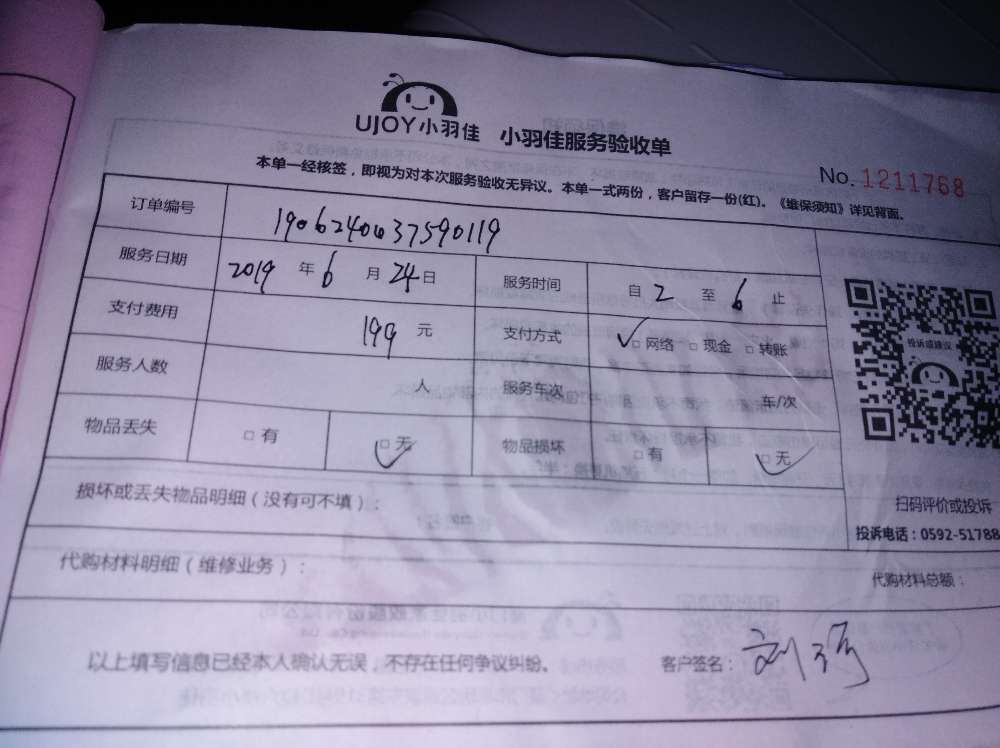 UJOY小羽佳 小羽佳服务验收单
No. 1211768
本单一经核签，即视为对本次服务验收无异议。本单一式两份，客户留存一份(红)。《维保须知》详见背面。
订单编号 1906240437590119
服务日期 2019 年 6 月 24 日 服务时间 自 2 至 6 止
支付费用 199 元 支付方式 ✓□ 网络 □ 现金 □ 转账
投诉或建议
服务人数 人 服务车次 车/次
物品丢失 □ 有 □ 无 物品损坏 □ 有 □ 无
损坏或丢失物品明细（没有可不填）：
扫码评价或投诉
投诉电话：0592-51788
代购材料明细（维修业务）： 代购材料总额：
以上填写信息已经本人确认无误，不存在任何争议纠纷。 客户签名：刘